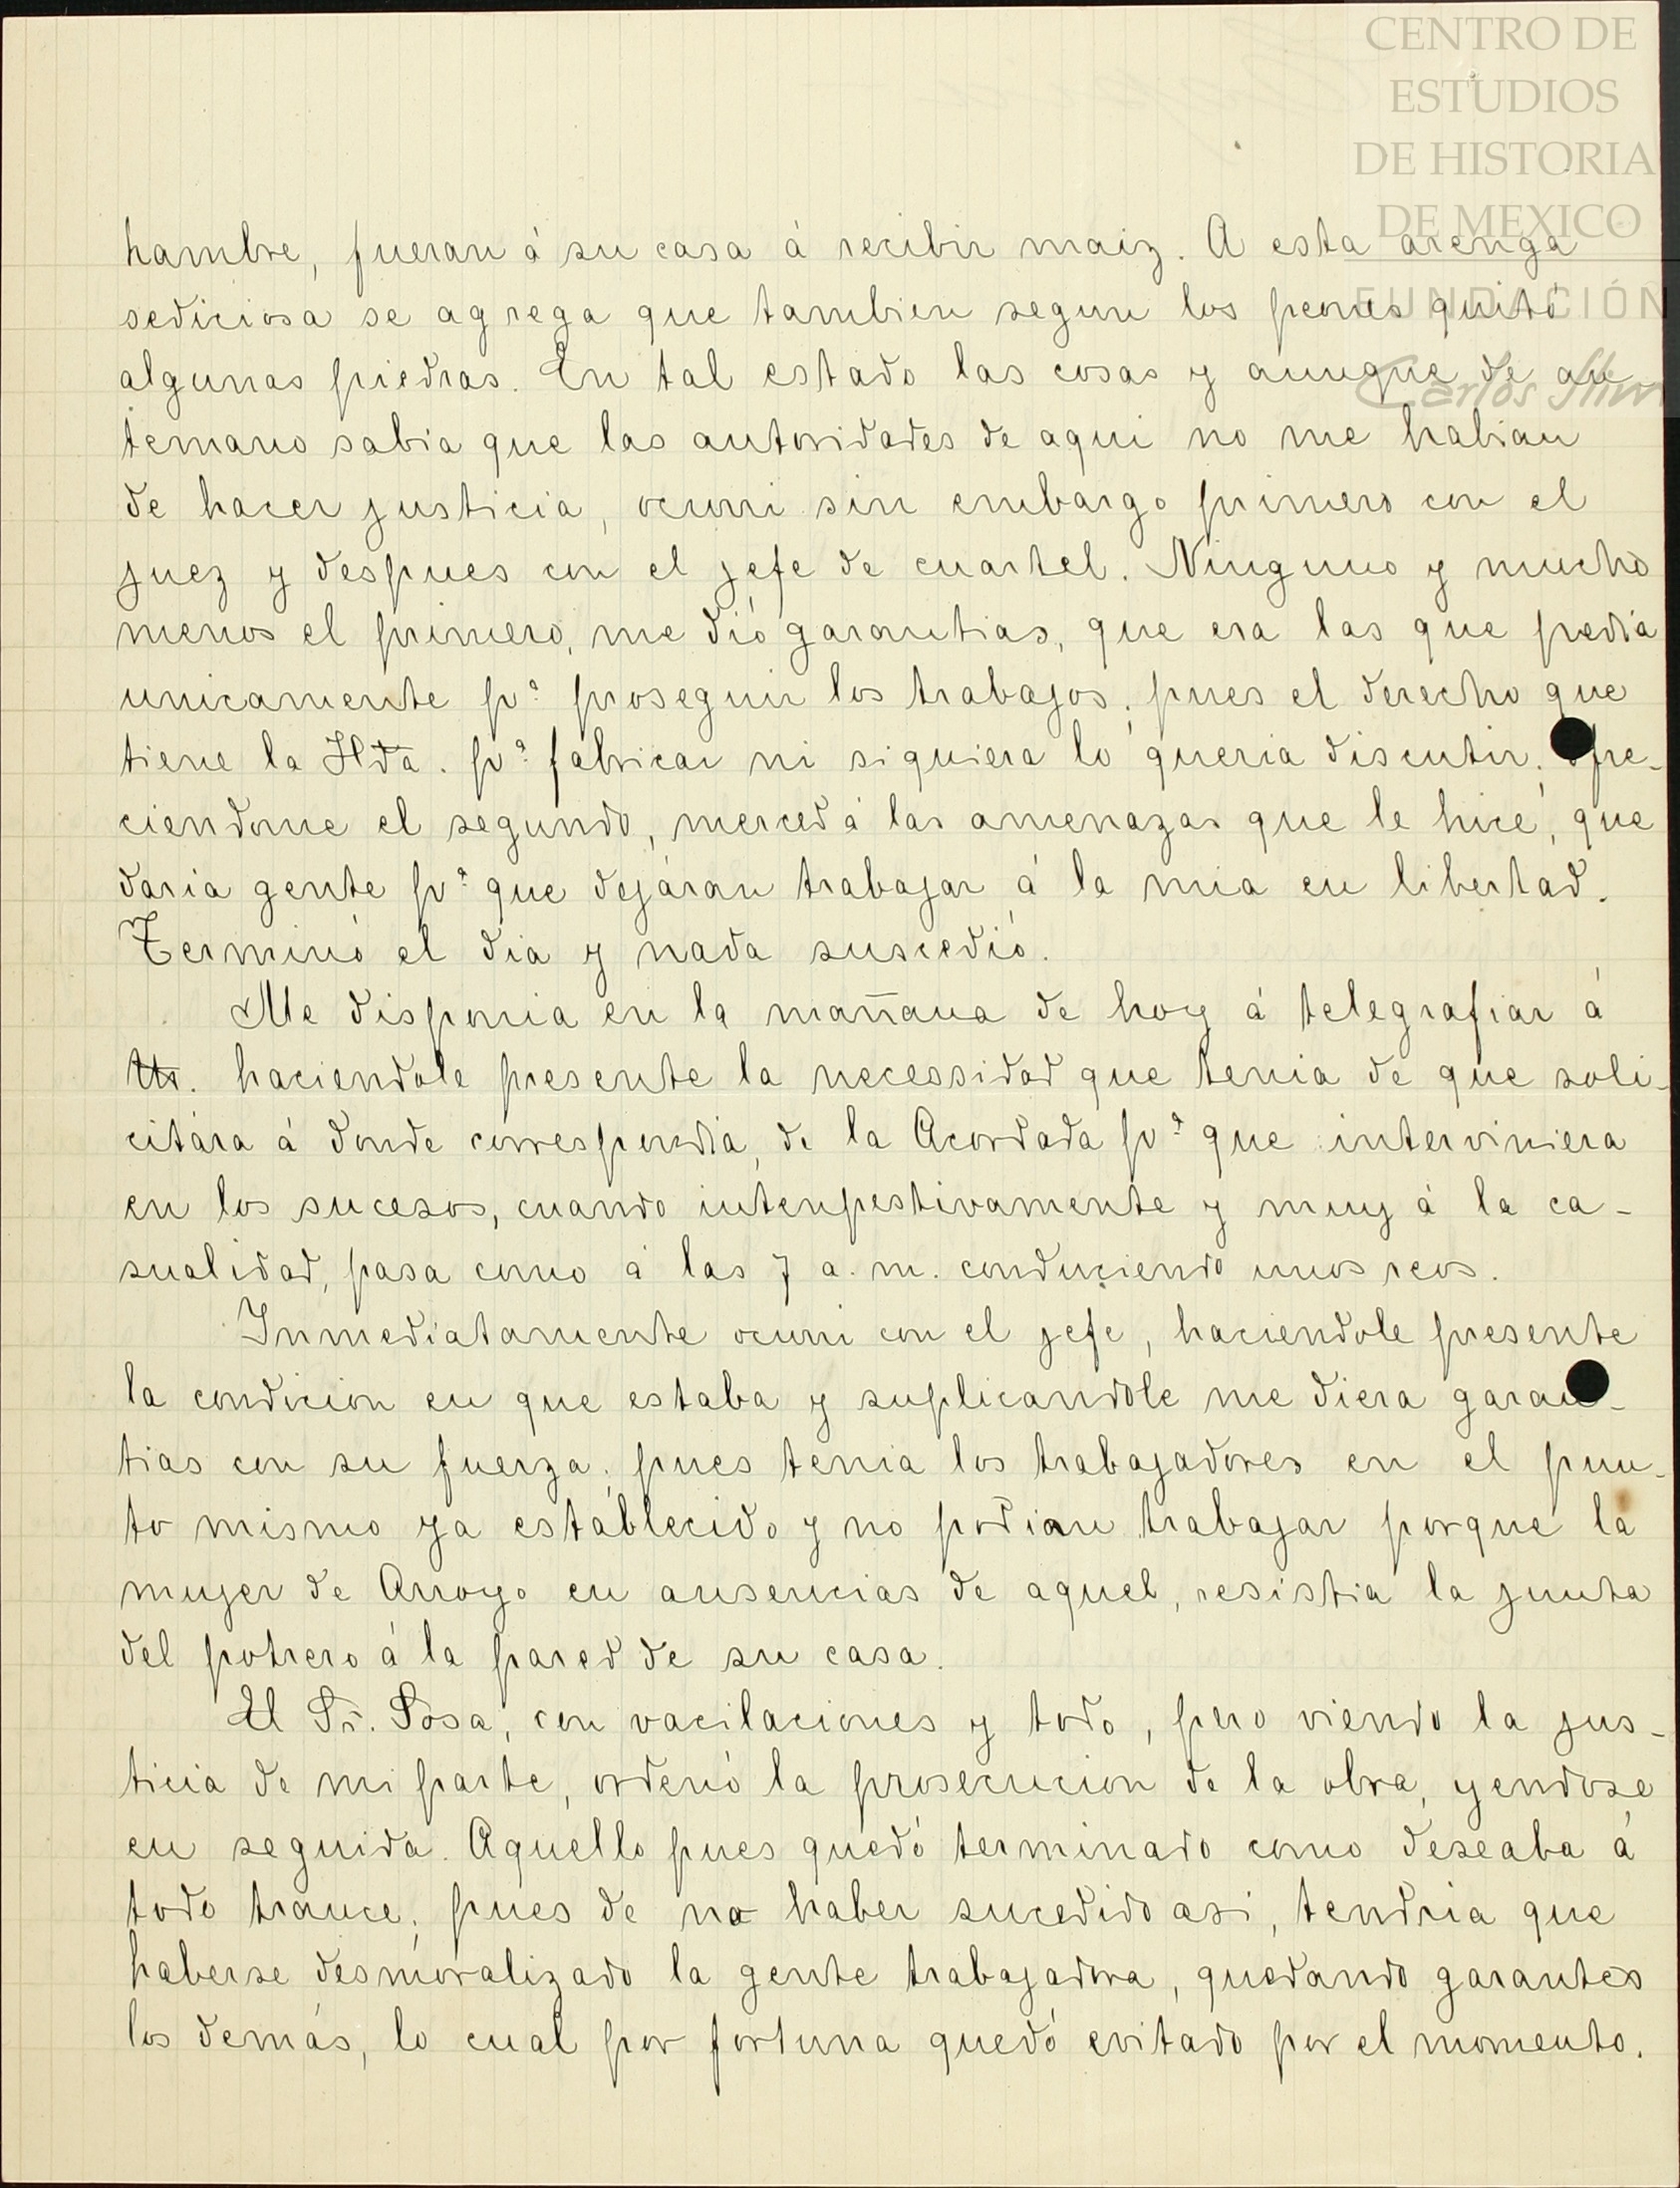 CENTRO DE
ESTUDIOS
DE HISTORIA
DE MEXICO
FUNDACIÓN
Carlos Slim
hambre, fueran á su casa á recibir maiz. A esta arenga
sediciosa se agrega que tambien segun los peones quitó
algunas piedras. En tal estado las cosas y aunque de an
temano sabia que las autoridades de aqui no me habian
de hacer justicia, ocurri sin embargo primero con el
juez y despues con el jefe de cuartel. Ninguno y mucho
menos el primero, me dió garantias, que era las que pedia
unicamente pª proseguir los trabajos; pues el derecho que
tiene la Hda. pª fabricar ni siquiera lo queria discutir; ofre-
ciendome el segundo, merced á las amenazas que le hice, que
daria gente pª que dejáran trabajar á la mia en libertad.
Terminó el dia y nada suscedió.
Me disponia en la mañana de hoy á telegrafiar á
Ur. haciendole presente la necessidad que tenia de que soli-
citára á donde correspondia, de la Acordada pª que interviniera
en los sucesos, cuando intenpestivamente y muy á la ca-
sualidad, pasa como á las 7 a. m. conduciendo unos reos.
Inmediatamente ocurri con el jefe, haciendole presente
la condicion en que estaba y suplicandole me diera garan-
tias con su fuerza; pues tenia los trabajadores en el pun-
to mismo ya establecido y no podian trabajar porque la
mujer de Arroyo en ausencias de aquel, resistia la junta
del potrero á la pared de su casa.
El Sr. Sosa, con vacilaciones y todo, pero viendo la jus-
ticia de mi parte, ordenó la prosecucion de la obra, yendose
en seguida. Aquello pues quedó terminado como deseaba á
todo trance; pues de no haber sucedido asi, tendria que
haberse desmoralizado la gente trabajadora, quedando garantes
los demás, lo cual por fortuna quedó evitado por el momento.